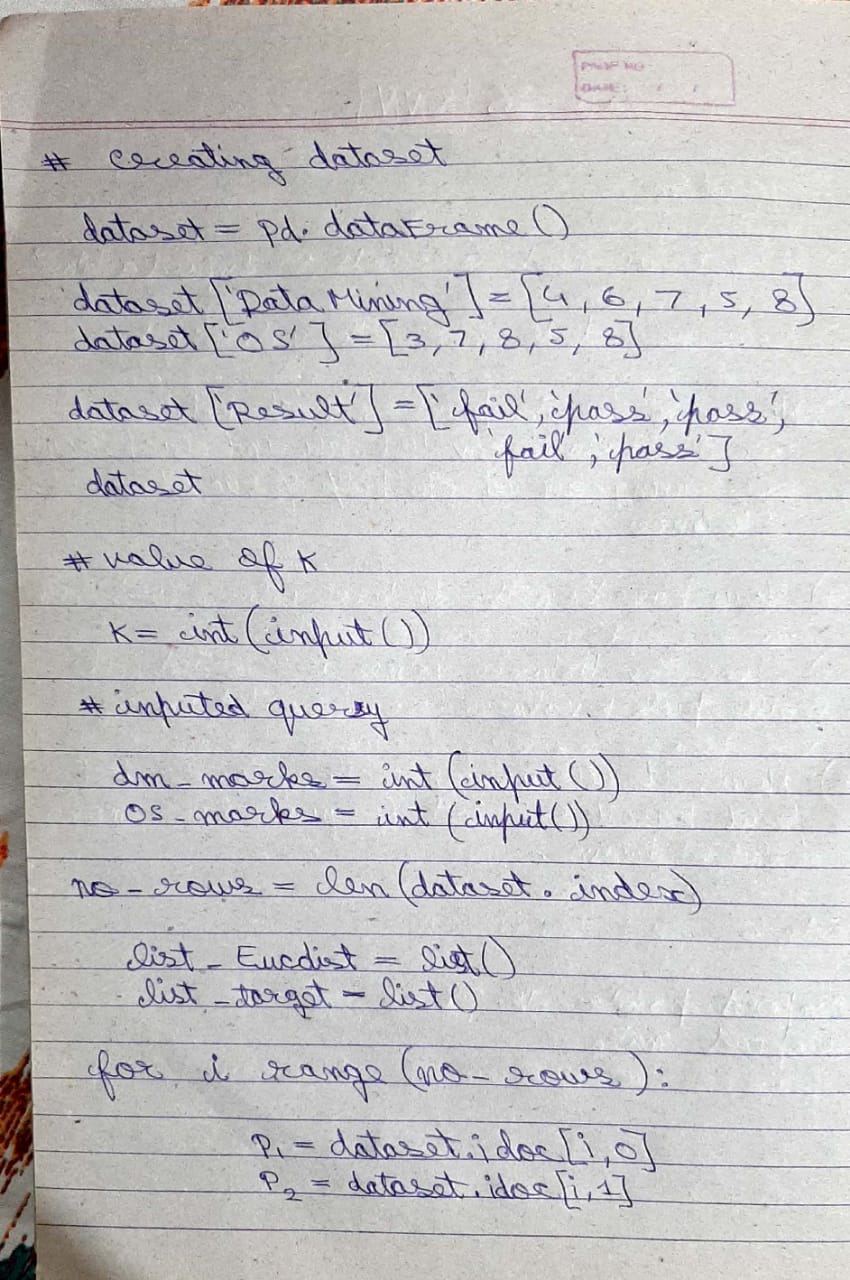 PAGE NO.
DATE: / /
# Creating dataset
dataset = pd. dataFrame()
dataset ['Data Mining'] = [4, 6, 7, 5, 8]
dataset ['OS'] = [3, 7, 8, 5, 8]
dataset ['Result'] = ['fail', 'pass', 'pass',
'fail', 'pass']
dataset
# value of K
K = int (input ())
# inputed query
dm_marks = int (input ())
OS_marks = int (input())
no_rows = len (dataset. index)
list_Eucdist = list()
list_target = list()
for i range (no_rows):
P₁ = dataset.idoc[i,0]
P₂ = dataset.idoc[i,1]